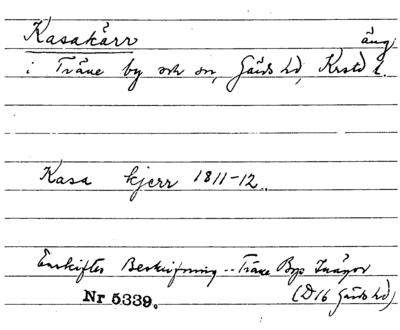 Kasakärr äng
i Träne by och sn, Gärds hd, Krstd l.
Kasa kjerr 1811-12.
Enskiftes Beskrifning -- Träne Bys Inägor
Nr 5339. (D16 Gärds hd)